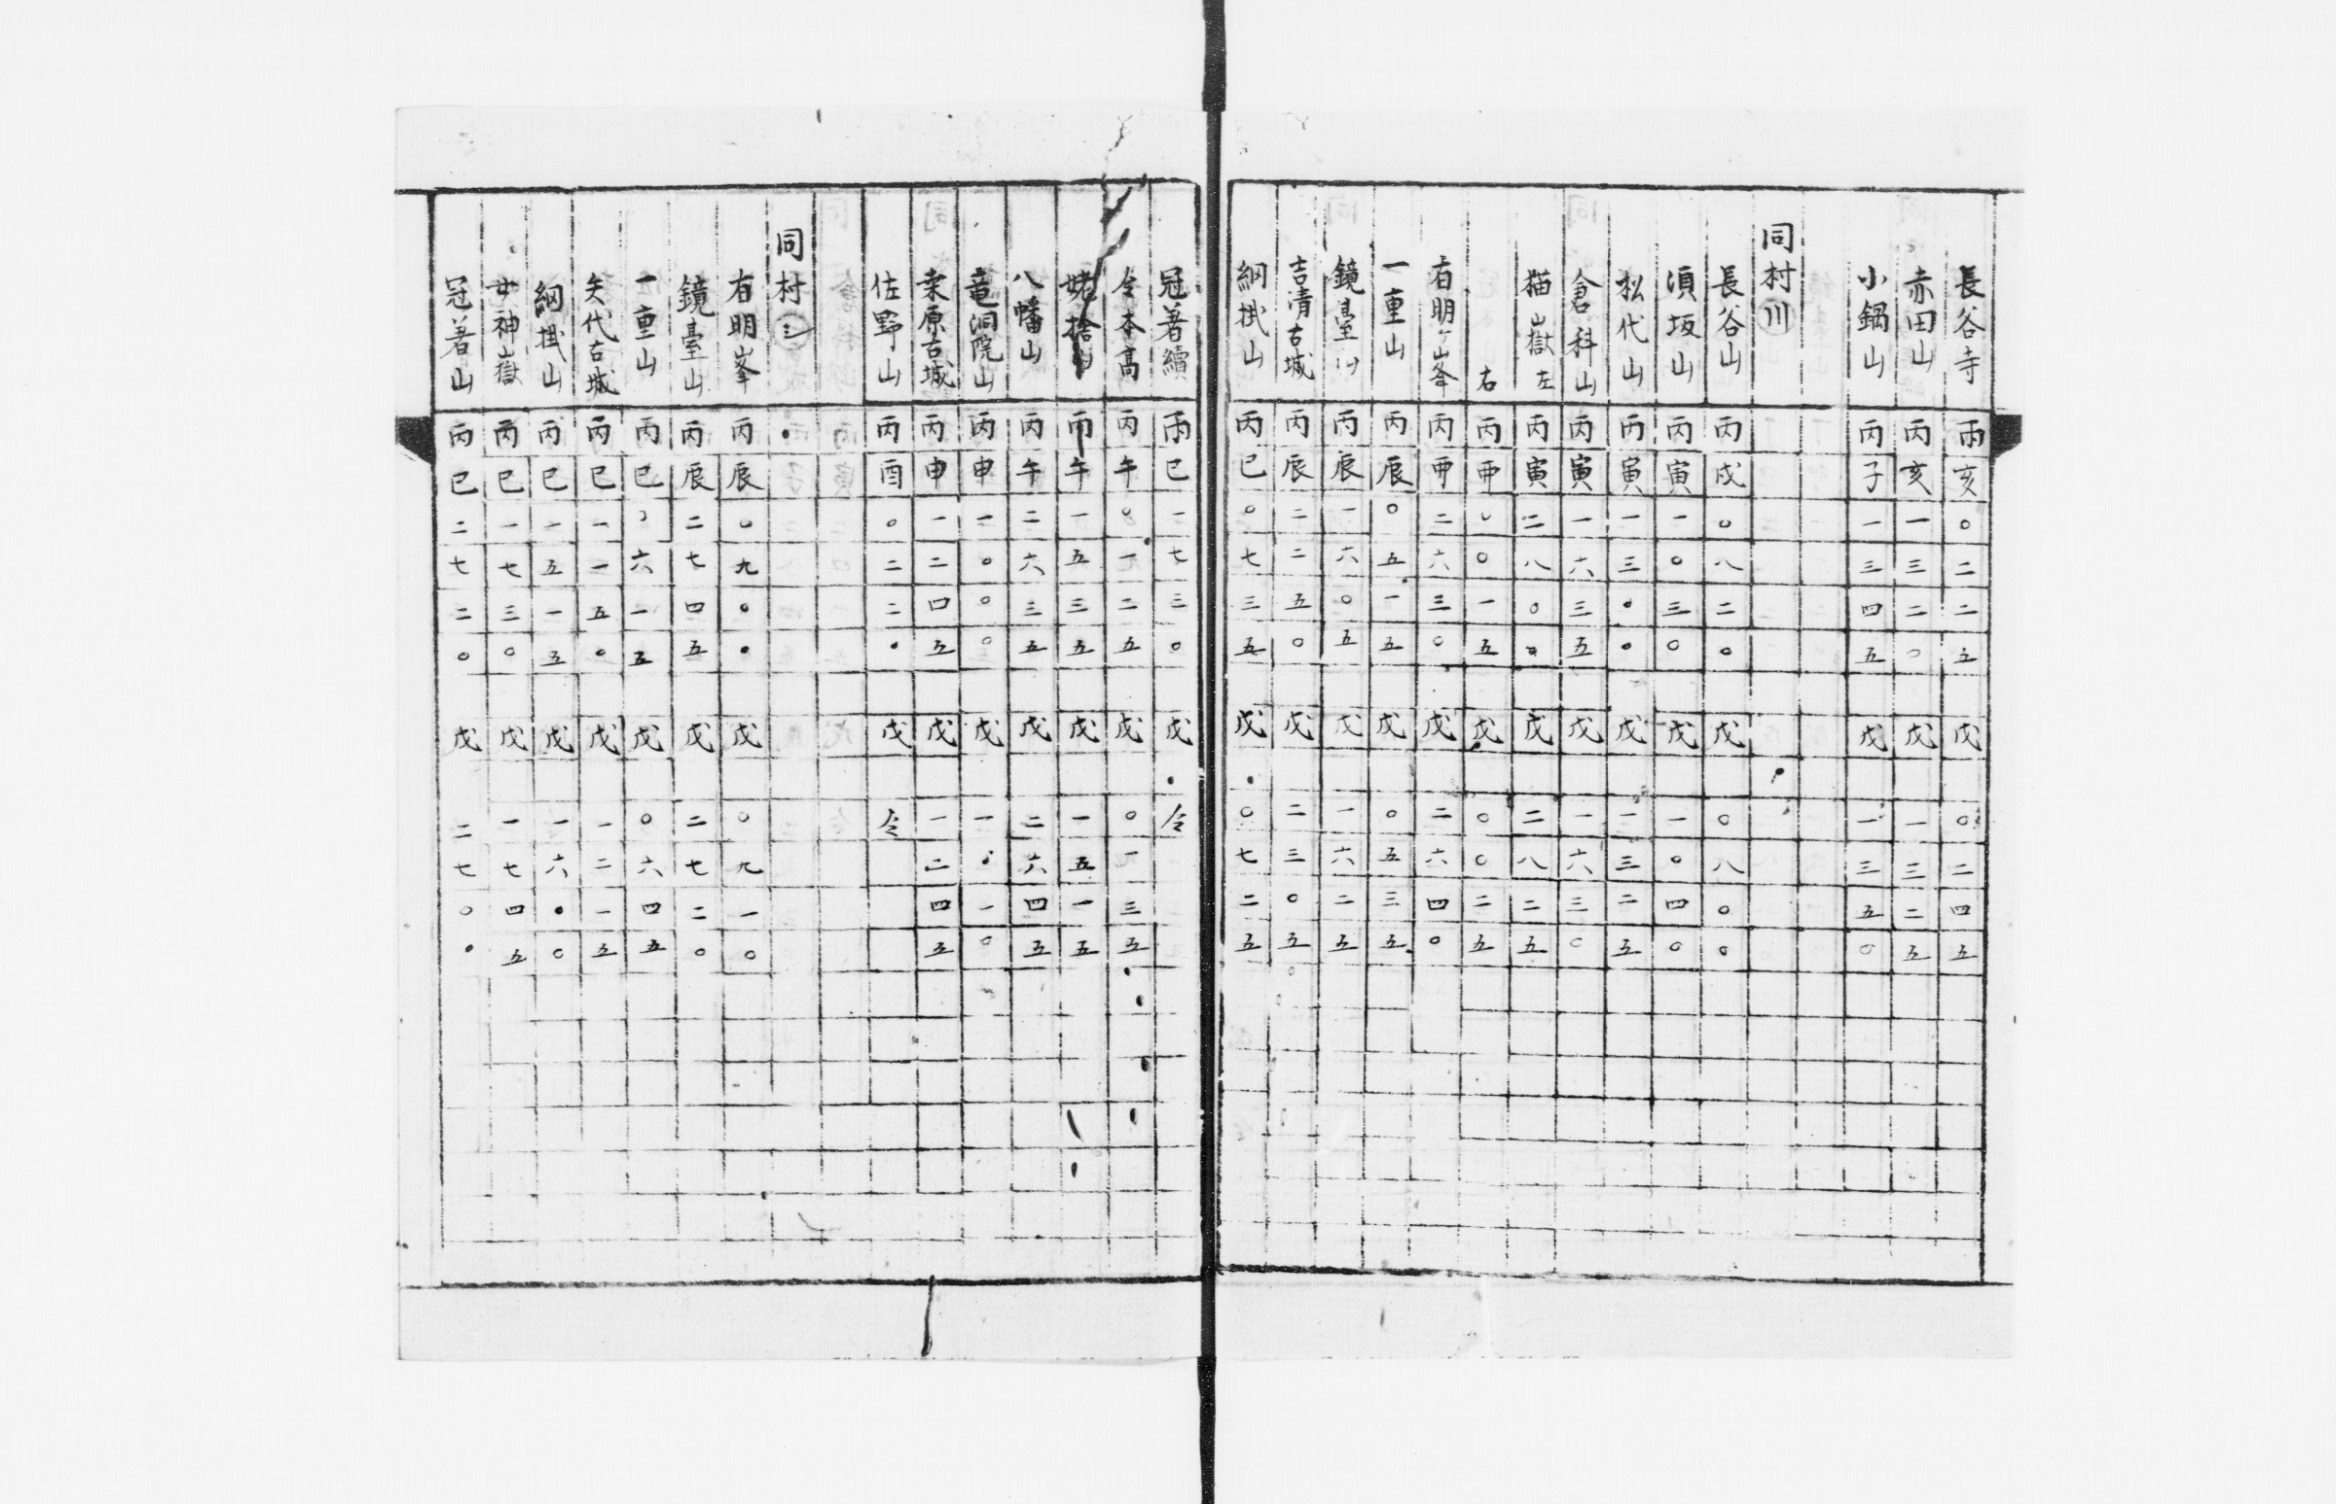 長谷寺 丙亥〇二二五 戊 〇二四五
赤田山 丙亥一三二〇 戊 一三二五
小鍋山 丙子一三四五 戊 一三五〇
同村 川
長谷山 丙戌〇八二〇 戊 〇八〇〇
須坂山 丙寅一〇三〇 戊 一〇四〇
松代山 丙寅一三〇〇 戊 一三二五
倉科山 丙寅一六三五 戊 一六三〇
猫山嶽左 丙寅二八〇〇 戊 二八二五
右 丙〇〇一五 戊 〇〇二五
有明ヶ峯 丙二六三〇 戊 二六四〇
一重山 丙辰〇五一五 戊 〇五三五
鏡臺山 丙辰一六〇五 戊 一六二五
吉清古城 丙辰二二五〇 戊 二三〇五
網掛山 丙巳〇七三五 戊 〇七二五
冠著續 丙巳一七三〇 戊 仝
本髙 丙午〇一二五 戊 〇一三五
姥捨山 丙午一五三五 戊 一五一五
八幡山 丙午二六三五 戊 二六四五
竜洞院山 丙申一〇〇〇 戊 一〇一〇
桒原古城 丙申一二四五 戊 一二四五
佐野山 丙酉〇二二〇 戊 仝
同村 三
有明峯 丙辰〇九〇〇 戊 〇九一〇
鏡臺山 丙辰二七四五 戊 二七二〇
一重山 丙巳〇六一五 戊 〇六四五
矢代古城 丙巳一一五〇 戊 一二一五
網掛山 丙巳一五一五 戊 一六〇〇
女神嶽 丙巳一七三〇 戊 一七四五
冠著山 丙巳二七二〇 戊 二七〇〇